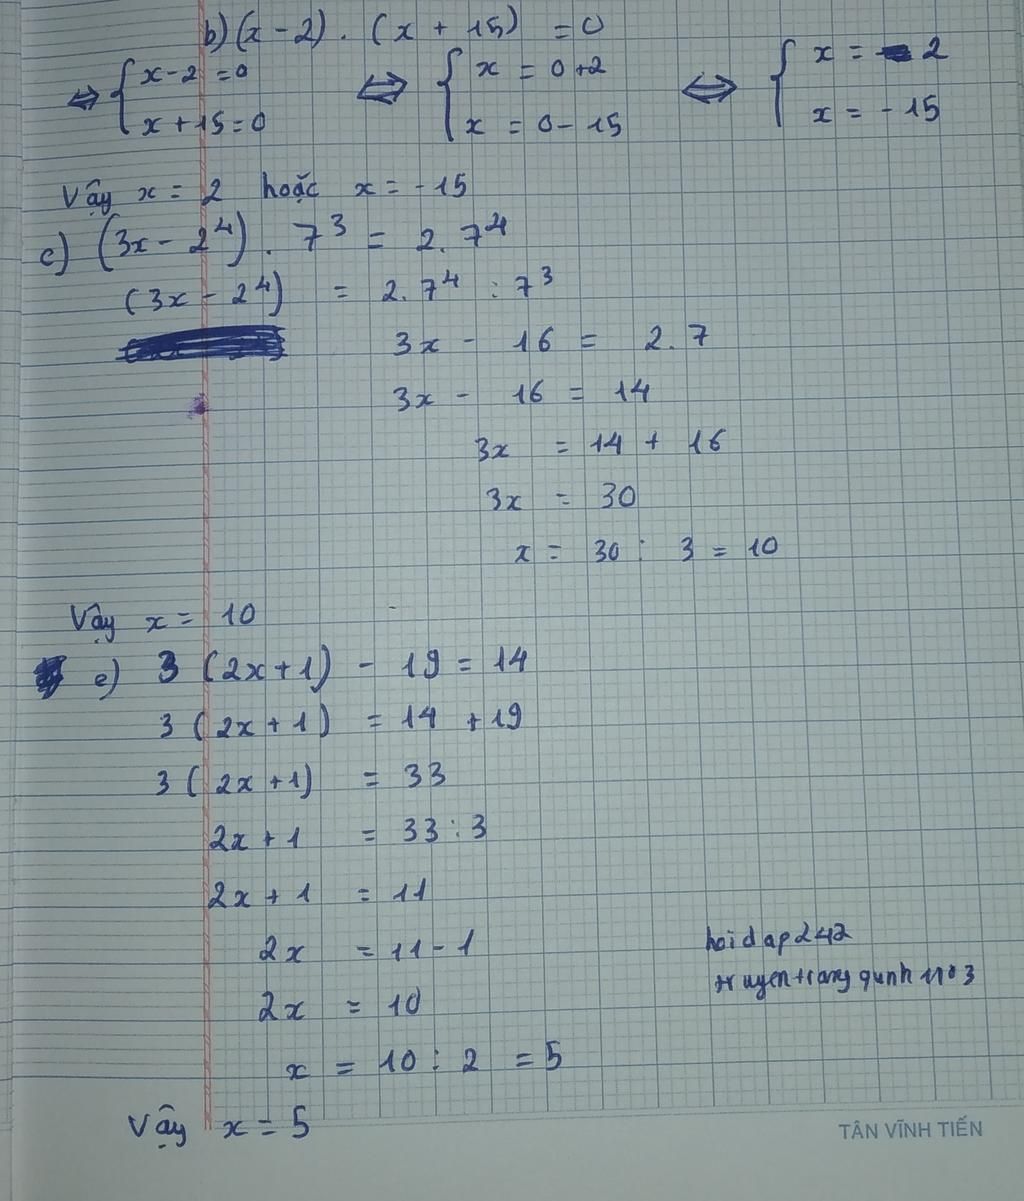 b) (x - 2) . (x + 15) = 0
⇔ { x - 2 = 0 ⇔ { x = 0 + 2 ⇔ { x = 2
x + 15 = 0 x = 0 - 15 x = - 15
Vậy x = 2 hoặc x = - 15
c) (3x - 2⁴) . 7³ = 2. 7⁴
(3x - 2⁴) = 2. 7⁴ : 7³
3x - 16 = 2. 7
3x - 16 = 14
3x = 14 + 16
3x = 30
x = 30 : 3 = 10
Vậy x = 10
e) 3 (2x + 1) - 19 = 14
3 (2x + 1) = 14 + 19
3 (2x + 1) = 33
2x + 1 = 33 : 3
2x + 1 = 11
2x = 11 - 1
2x = 10
x = 10 : 2 = 5
Vậy x = 5
hoidap242
truyentrangqunh1103
TÂN VĨNH TIẾN